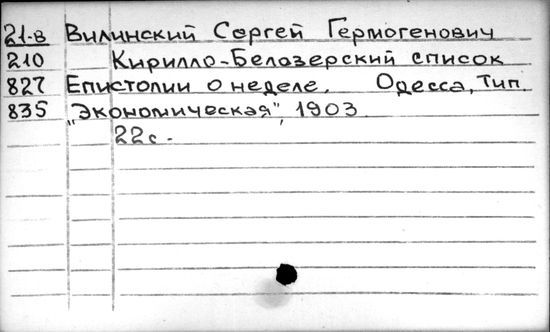 21-в Вилинский Сергей Гермогенович
210 Кирилло-Белозерский список
827 Епистолии о неделе. Одесса, Тип.
835 "Экономическая", 1903.
22с.